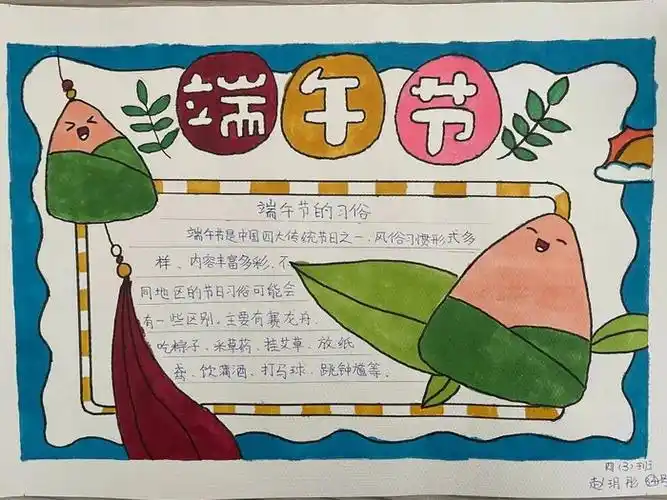 端午节
端午节的习俗
端午节是中国四大传统节日之一，风俗习惯形式多
样、内容丰富多彩，不
同地区的节日习俗可能会
有一些区别，主要有赛龙舟、
吃粽子、采草药、挂艾草、放纸
鸢、饮蒲酒、打马球、跳钟馗等。
四(3)班
赵玥彤